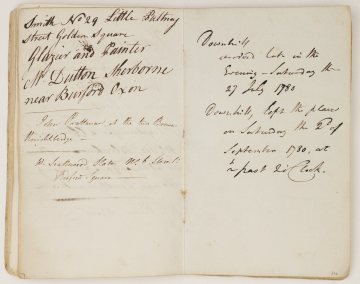 Smith No 29 Little Pultney
Street Golden Square
Glazier and Painter
Mr Dutton Sherborne
near Burford Oxon
John
at the
Knightsbridge
Street
Square
Downhill
arrived late in the
Evening Saturday the
27 July 1780
Downhill, left the place
on Saturday the 2d of
September 1780, at
past Clock.